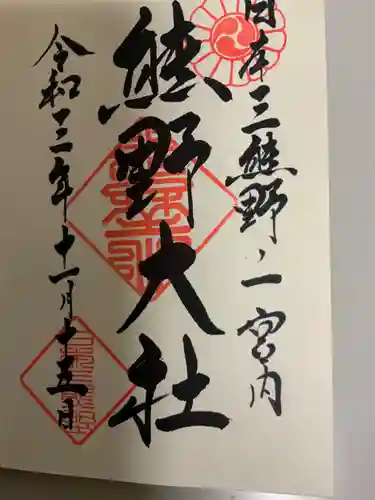 日本三熊野ノ一宮内
熊野大社
令和三年十一月十五日